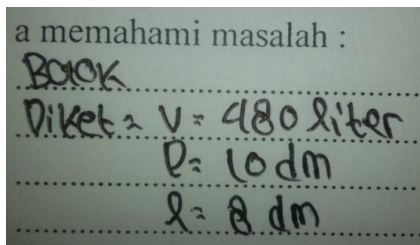 a memahami masalah :
Balok
Diket = V = 480 liter
P = 10 dm
l = 8 dm